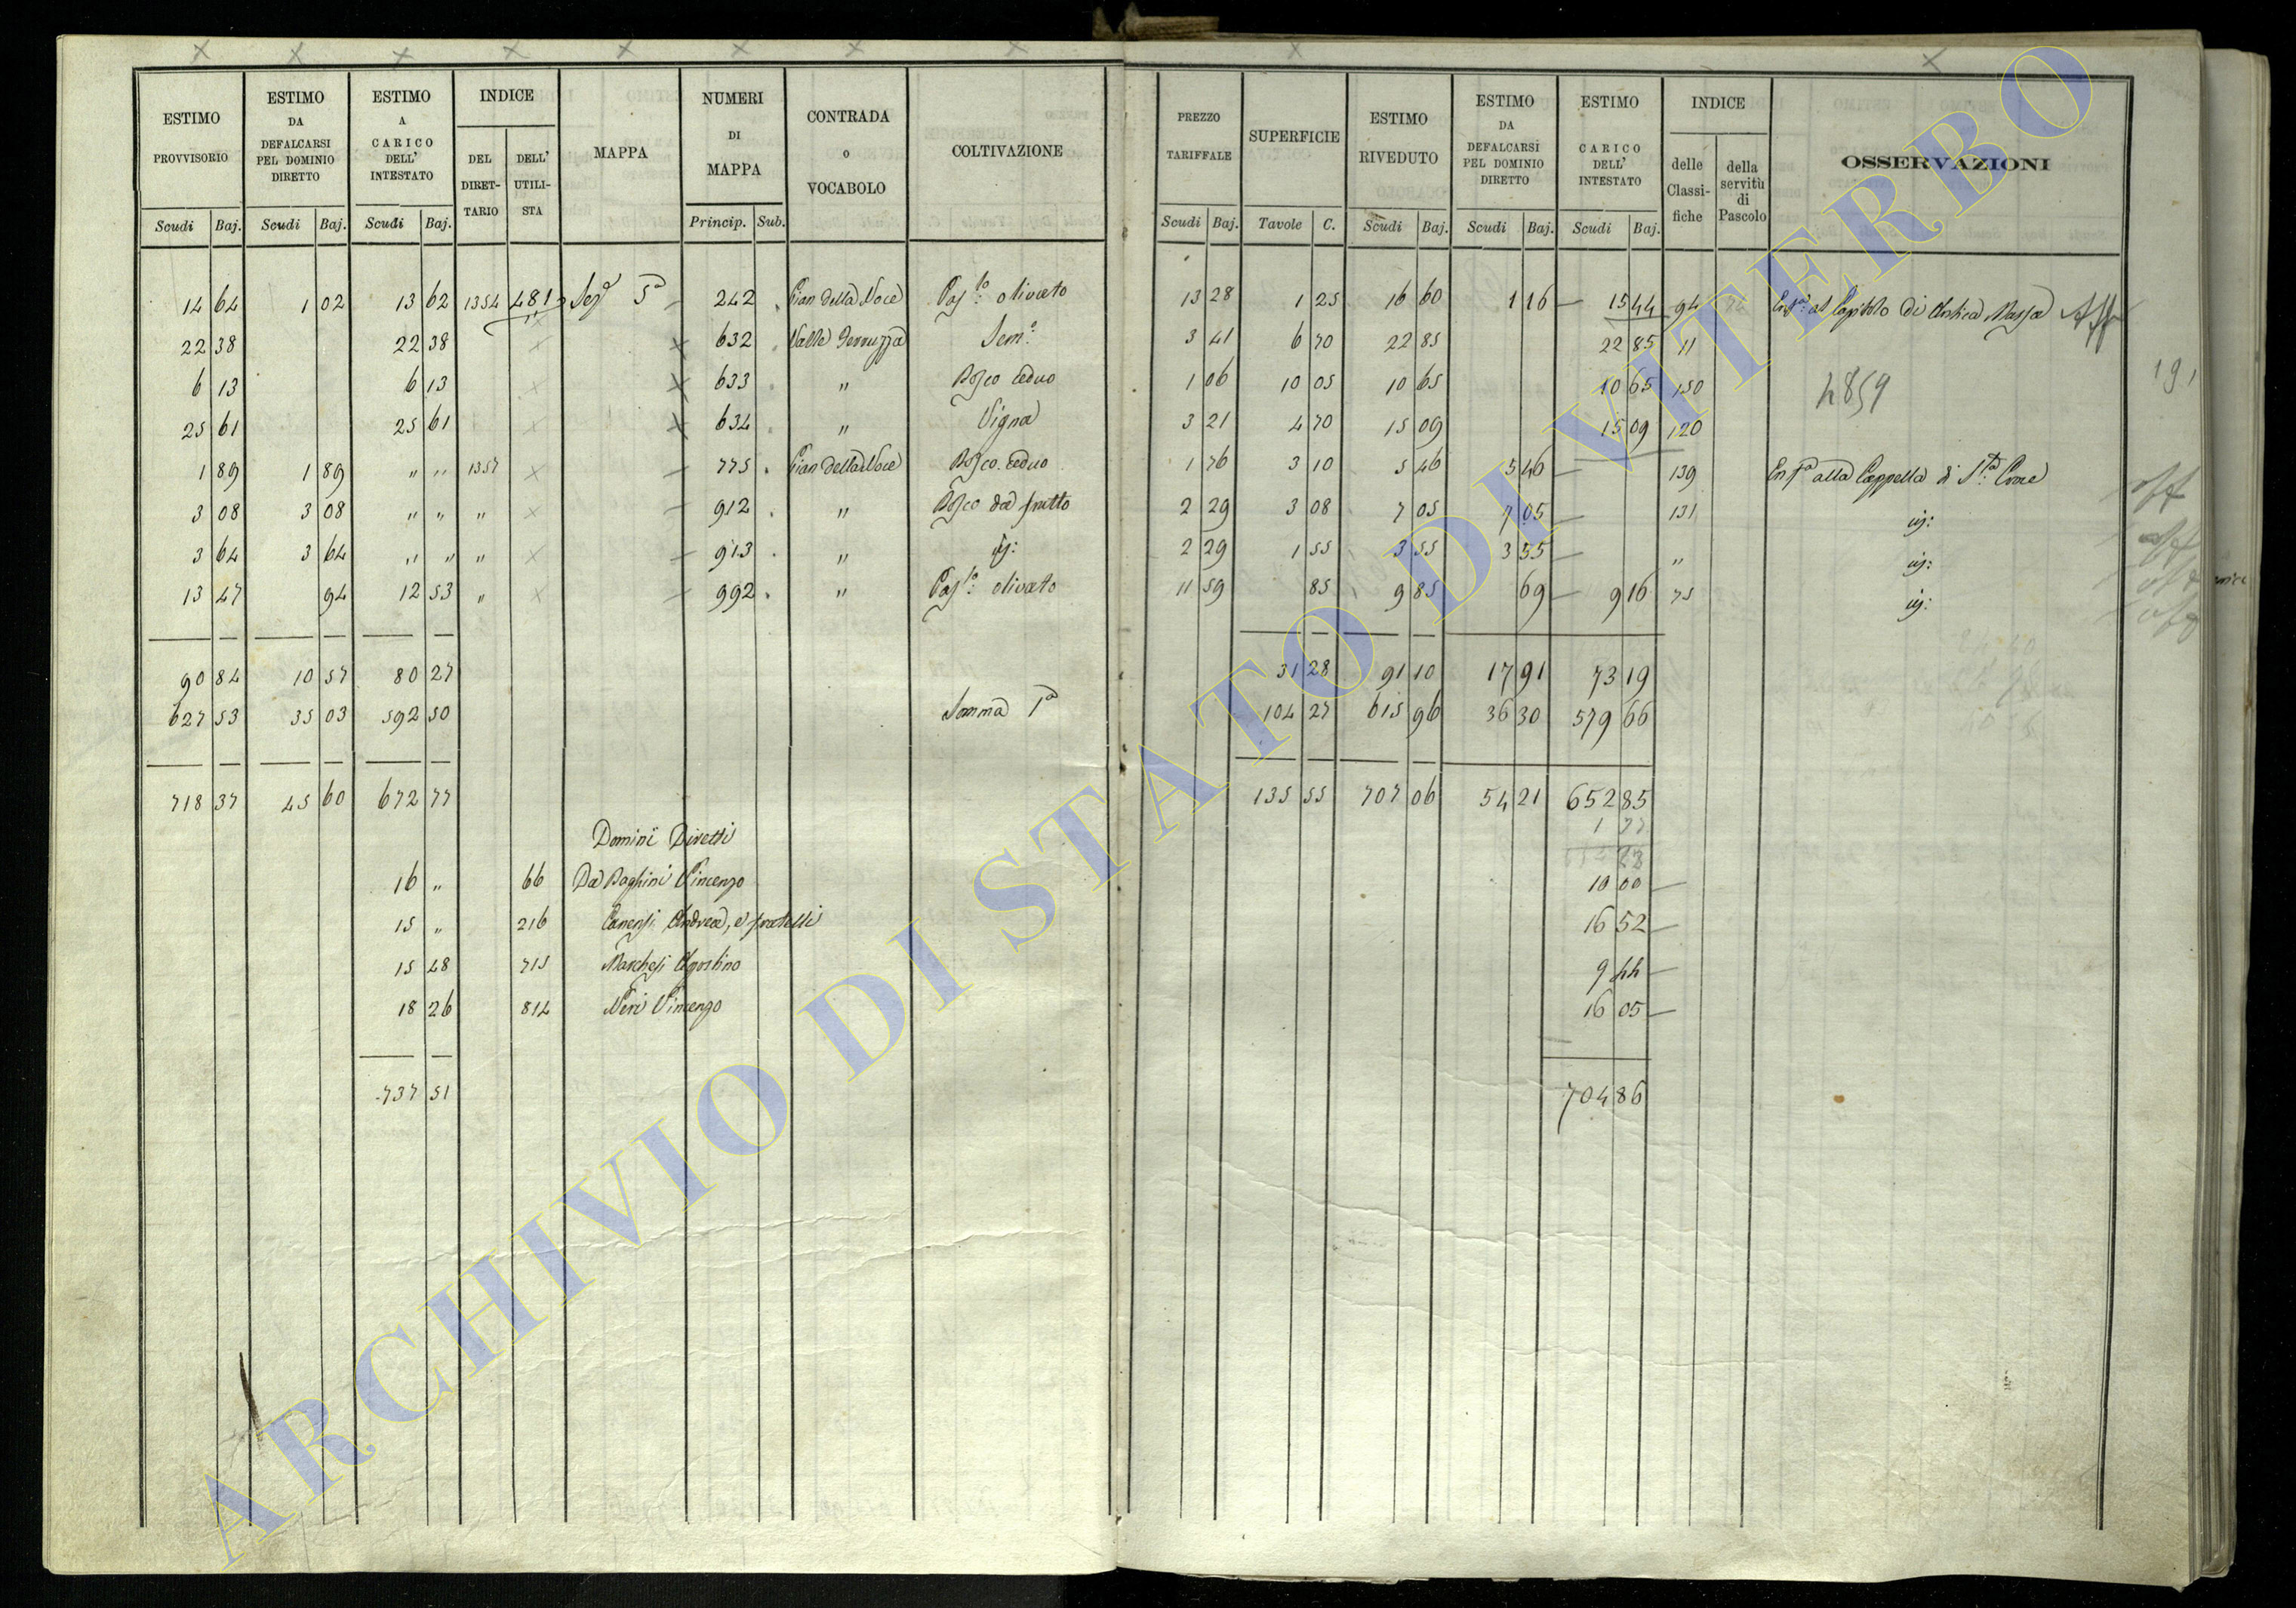 ESTIMO PROVVISORIO | ESTIMO DA DEFALCARSI PEL DOMINIO DIRETTO | ESTIMO A CARICO DELL' INTESTATO | INDICE DEL DIRET- TARIO | DELL' UTILI- STA | MAPPA | NUMERI DI MAPPA | CONTRADA O VOCABOLO | COLTIVAZIONE | PREZZO TARIFFALE | SUPERFICIE | ESTIMO RIVEDUTO | ESTIMO DA DEFALCARSI PEL DOMINIO DIRETTO | ESTIMO A CARICO DELL' INTESTATO | INDICE delle Classi- fiche | della servitù di Pascolo | OSSERVAZIONI
Scudi Baj. | Scudi Baj. | Scudi Baj. | Princip. Sub. | Scudi Baj. | Tavole C. | Scudi Baj. | Scudi Baj. | Scudi Baj.
14 64 | 1 02 | 13 62 | 1354 | 481 | Sez.e 5a | 242 | Pian della Noce | Pas.to olivato | 13 28 | 1 25 | 16 60 | 1 16 | 15 44 | 94 | Enf.a al Capitolo di Antica Massa Aff
22 38 | 22 38 | 632 | Valle | Sem.o | 3 41 | 6 70 | 22 85 | 22 85 | 11
6 13 | 6 13 | 633 | " | Bosco ceduo | 1 06 | 10 05 | 10 65 | 10 65 | 150 | 4859 | 191
25 61 | 25 61 | 634 | " | Vigna | 3 21 | 4 70 | 15 09 | 15 09 | 120
1 89 | 1 89 | " " | 1357 | 775 | Pian della Noce | Bosco ceduo | 1 76 | 3 10 | 5 46 | 5 46 | 139 | Enf.a alla Cappella di S.ta Croce
3 08 | 3 08 | " " | " | 912 | " | Bosco da frutto | 2 29 | 3 08 | 7 05 | 7 05 | 131 | id:
3 64 | 3 64 | " " | " | 913 | " | id: | 2 29 | 1 55 | 3 55 | 3 55 | " | id:
13 47 | 94 | 12 53 | " | 992 | " | Pas.to olivato | 11 59 | 85 | 9 85 | 69 | 9 16 | 75 | id:
90 84 | 10 57 | 80 27 | 31 28 | 91 10 | 17 91 | 73 19
627 53 | 35 03 | 592 50 | Somma 1a | 104 27 | 615 96 | 36 30 | 579 66
718 37 | 45 60 | 672 77 | 135 55 | 707 06 | 54 21 | 652 85
Domini Diretti
16 " | 66 | Da Baghini Vincenzo | 10 00
15 " | 216 | Canensi Andrea, e fratelli | 16 52
15 48 | 715 | Marchesi Agostino | 9 44
18 26 | 814 | Neri Vincenzo | 16 05
737 51 | 704 86
ARCHIVIO DI STATO DI VITERBO